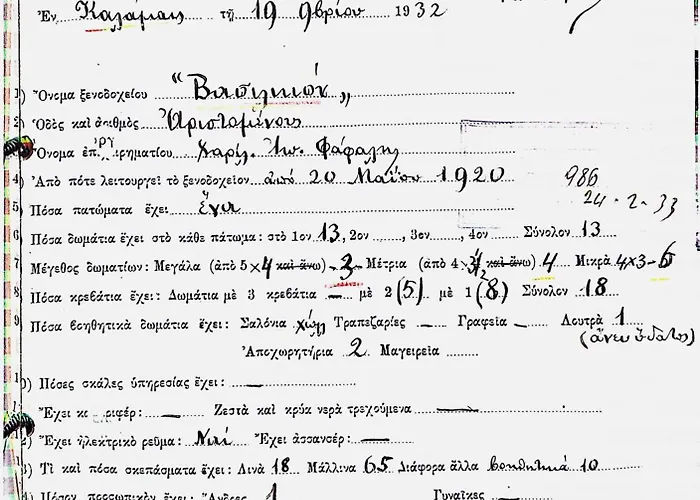 Ἐν Καλάμαις τῇ 19 9βρίου 1932
1) Ὄνομα ξενοδοχείου "Βασιλικόν"
2) Ὁδὸς καὶ ἀριθμὸς Ἀριστομένους
Ὄνομα ἐπιχειρηματίου Χαρίλ. Φάφαλης
986
4) Ἀπὸ πότε λειτουργεῖ τὸ ξενοδοχεῖον ἀπὸ 20 Μαΐου 1920
24-2-33
5) Πόσα πατώματα ἔχει ἕνα
6) Πόσα δωμάτια ἔχει στὸ κάθε πάτωμα: στὸ 1ον 13, 2ον , 3ον , 4ον Σύνολον 13
7) Μέγεθος δωματίων: Μεγάλα (ἀπὸ 5×4 καὶ ἄνω) 3 Μέτρια (ἀπὸ 4× καὶ ἄνω) 4 Μικρὰ 4×3-6
8) Πόσα κρεβάτια ἔχει: Δωμάτια μὲ 3 κρεβάτια — μὲ 2 (5) μὲ 1 (8) Σύνολον 18
9) Πόσα βοηθητικὰ δωμάτια ἔχει: Σαλόνια χώλ Τραπεζαρίες — Γραφεῖα — Λουτρὰ 1
(ἄνευ ὕδατος)
Ἀποχωρητήρια 2 Μαγειρεῖα
10) Πόσες σκάλες ὑπηρεσίας ἔχει: —
Ἔχει — Ζεστὰ καὶ κρύα νερὰ τρεχούμενα —
2) Ἔχει ἠλεκτρικὸ ρεῦμα: Ναί Ἔχει ἀσσανσέρ: —
3) Τὶ καὶ πόσα σκεπάσματα ἔχει: Λινὰ 18 Μάλλινα 65 Διάφορα ἄλλα βοηθητικά 10
Πόσον προσωπικὸν ἔχει: Ἄνδρες 1 Γυναῖκες —